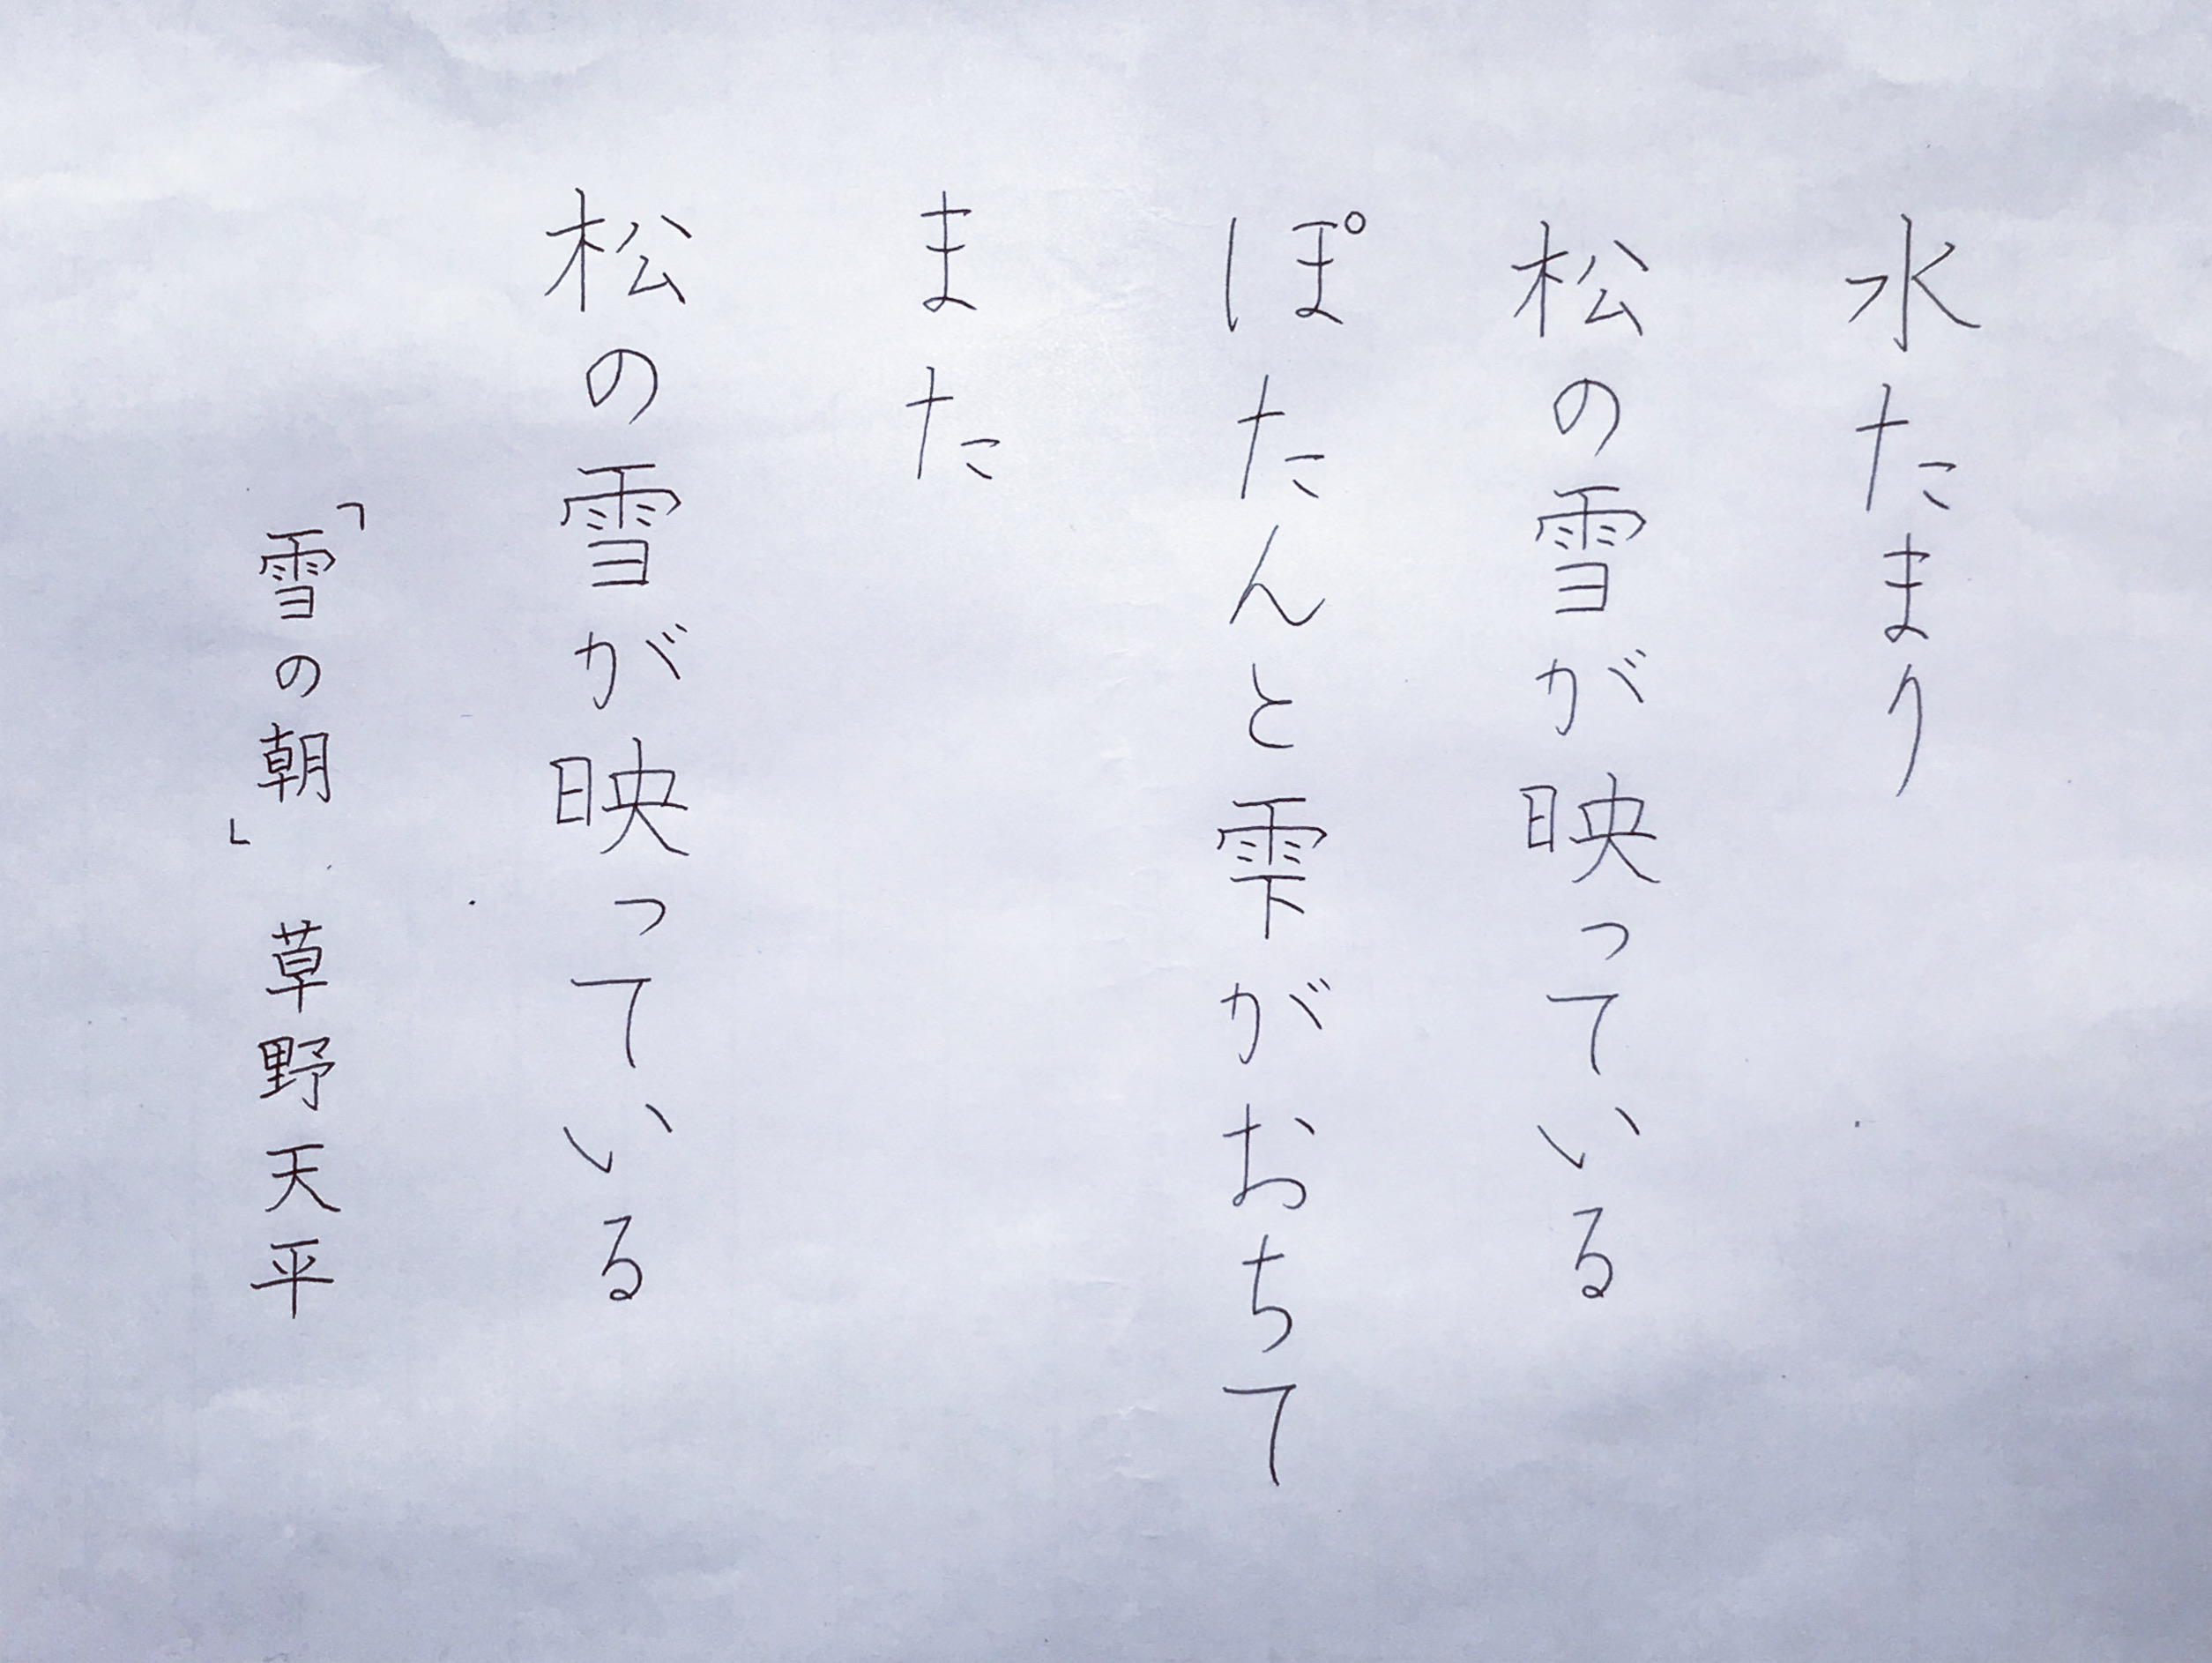 水たまり
松の雪が映っている
ぽたんと雫がおちて
また
松の雪が映っている
「雪の朝」 草野天平